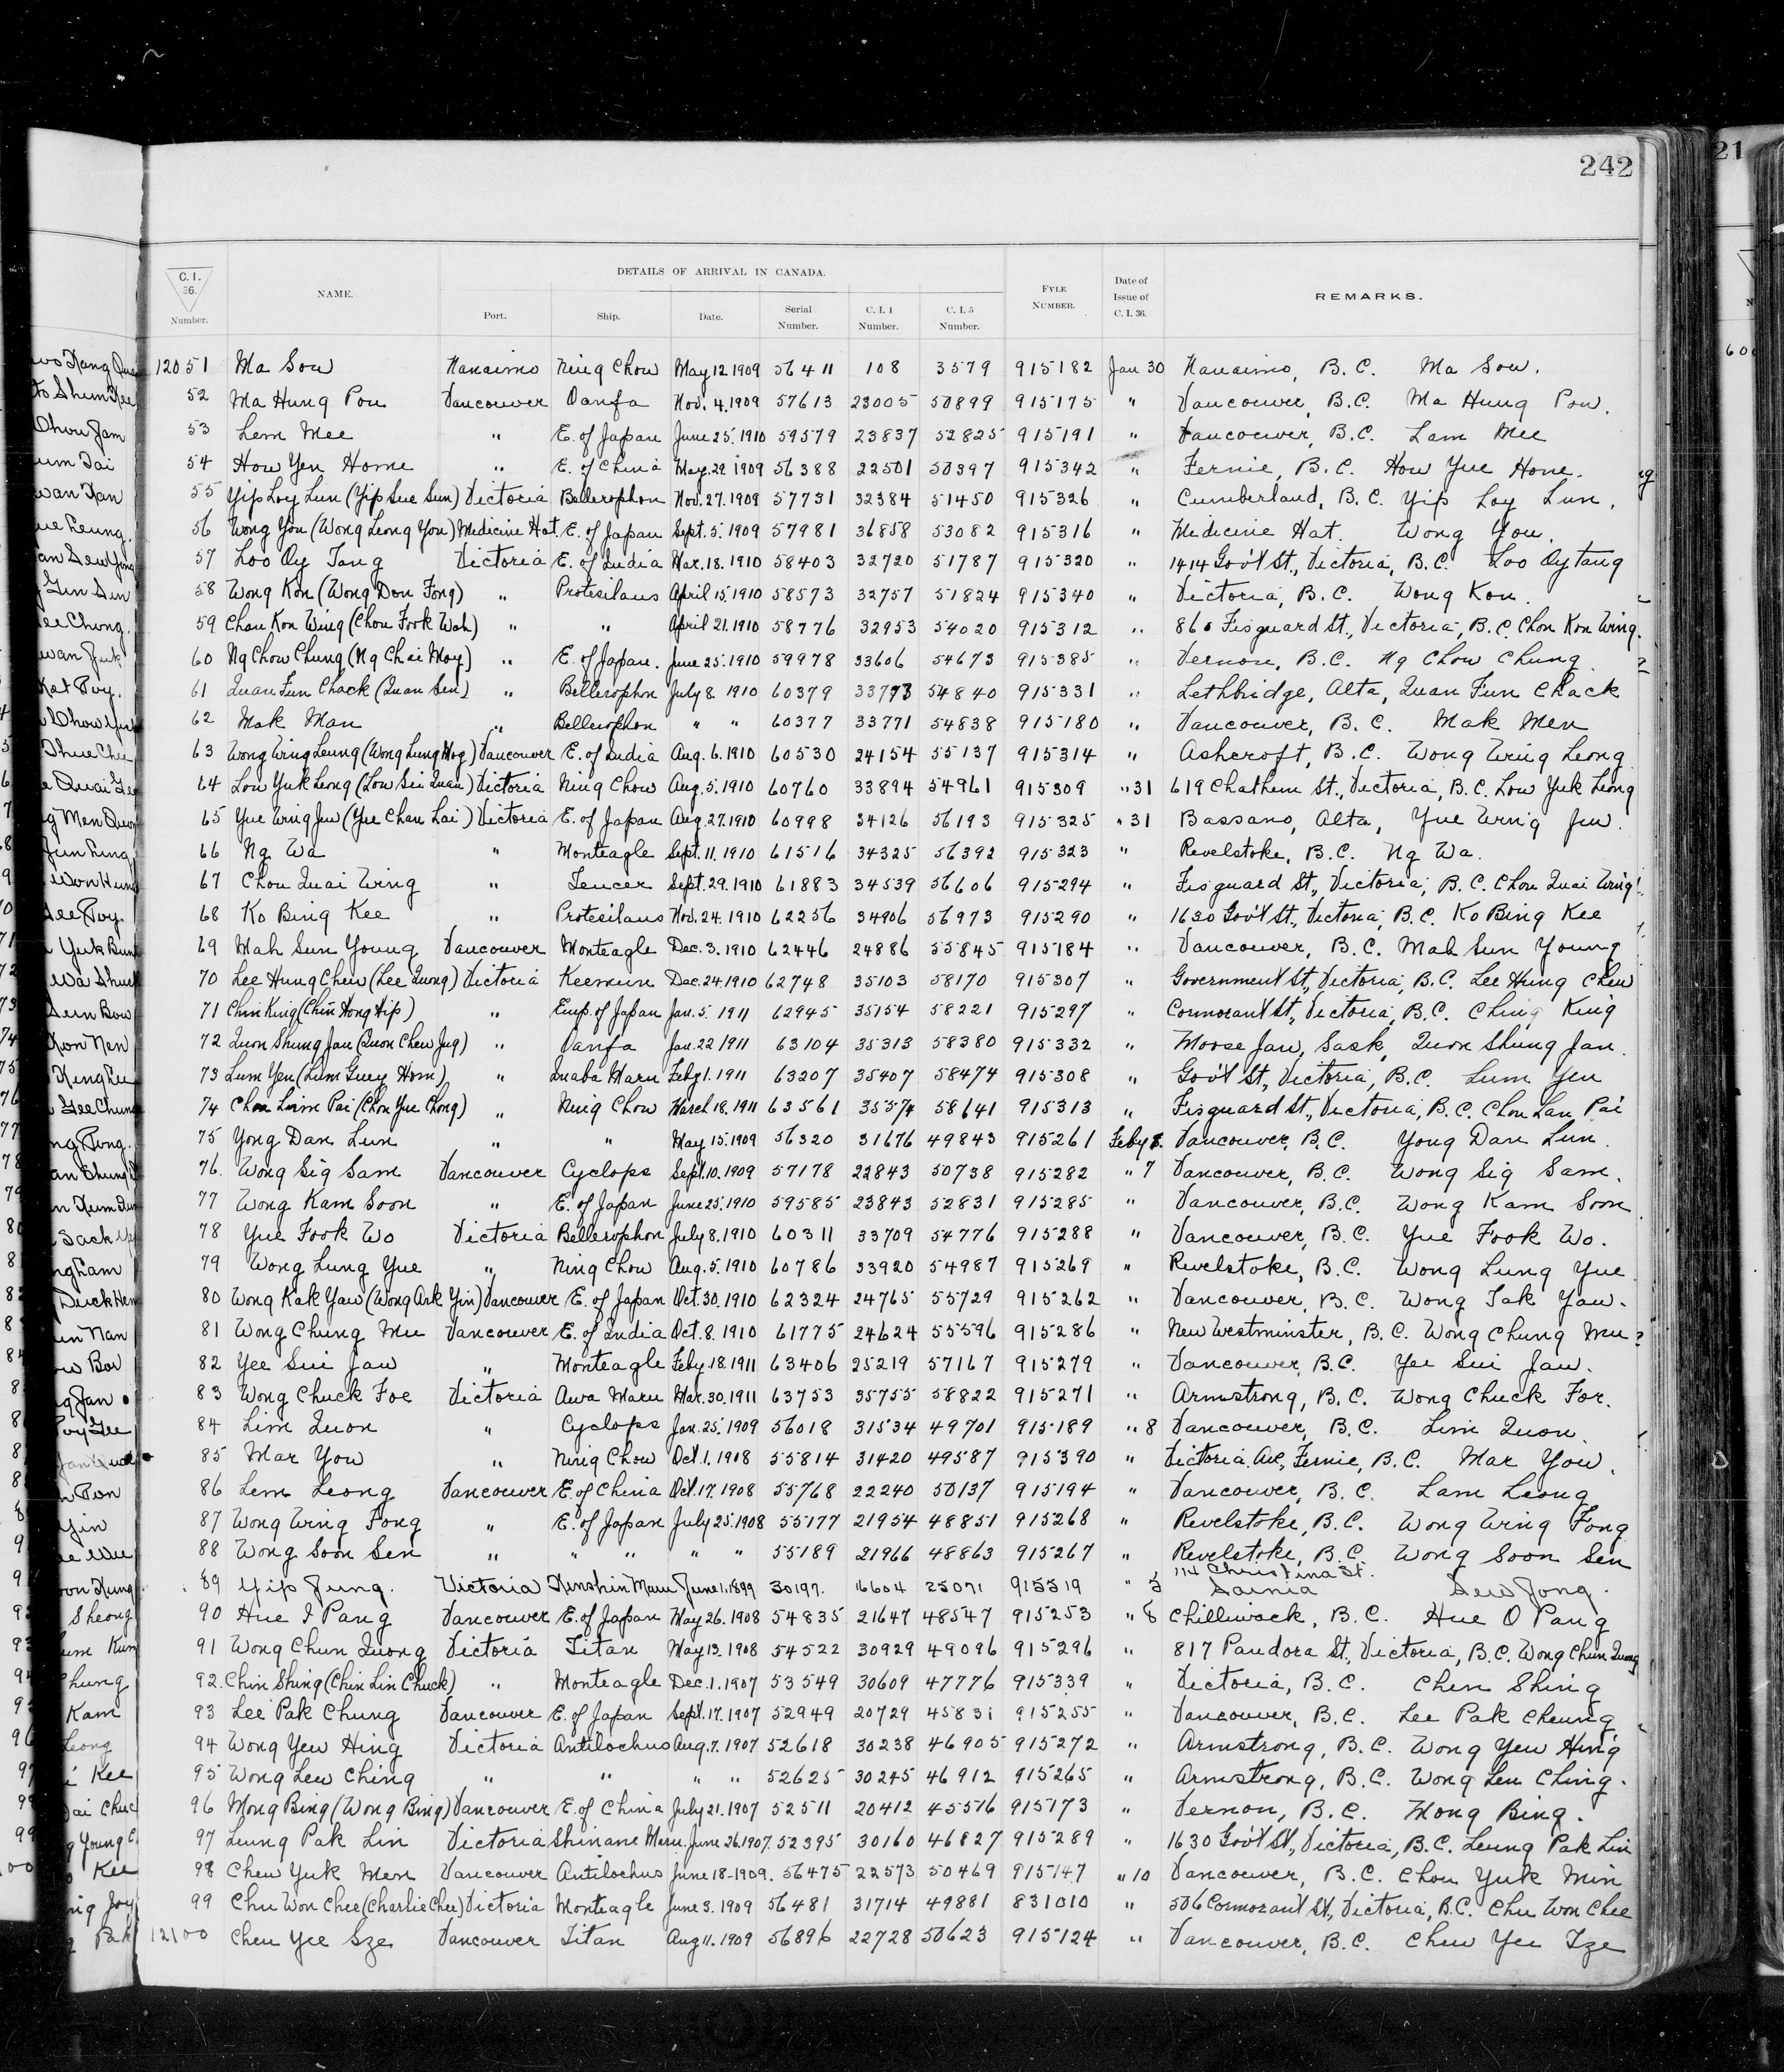 242
21
C. I. 36. Number.
NAME.
DETAILS OF ARRIVAL IN CANADA.
Port. Ship. Date. Serial Number. C. I. 4 Number. C. I. 5 Number.
FYLE NUMBER.
Date of Issue of C. I. 36.
REMARKS.
12051 Ma Sou Nanaimo Ning Chow May 12 1909 56411 108 3579 915182 Jan 30 Nanaimo, B. C. Ma Sow.
52 Ma Hung Pou Vancouver Oanfa Nov. 4. 1909 57613 23005 50899 915175 " Vancouver, B. C. Ma Hung Pow.
53 Lem Mee " E. of Japan June 25. 1910 59579 23837 52825 915191 " Vancouver, B.C. Lam Mee
54 How Yen Home " E. of China May. 29. 1909 56388 22501 50397 915342 " Fernie, B. C. How Yue Hone.
55 Yip Loy Lun (Yip Sue Sun) Victoria Bellerophon Nov. 27. 1909 57731 32384 51450 915326 " Cumberland, B. C. Yip Loy Lun.
56 Wong You (Wong Leong You) Medicine Hat E. of Japan Sept. 5. 1909 57981 36858 53082 915316 " Medicine Hat. Wong You.
57 Loo Oy Tang Victoria E. of India Mar. 18. 1910 58403 32720 51787 915320 " 1414 Gov't St., Victoria, B. C. Loo Oytang
58 Wong Kon (Wong Don Fong) " Protesilaus April 15. 1910 58573 32757 51824 915340 " Victoria, B. C. Wong Kon.
59 Chan Kon Wing (Chou Fook Wah) " " April 21. 1910 58776 32953 54020 915312 " Fisguard St., Victoria, B. C. Chon Kon Wing.
60 Ng Chow Chung (Ng Chai Moy) " E. of Japan. June 25. 1910 59978 33606 54673 915385 " Vernon, B. C. Ng Chow Chung
61 Quan Fun Chack (Quan Sen) " Bellerophon July 8 1910 60379 33773 54840 915331 " Lethbridge, Alta, Quan Fun Chack
62 Mak Man " Bellerophon " " 60377 33771 54838 915180 " Vancouver, B. C. Mak Men
63 Wong Wing Leung (Wong Lung Hog) Vancouver E. of India Aug. 6. 1910 60530 24154 55137 915314 " Ashcroft, B. C. Wong Wing Leong
64 Low Yuk Leong (Low Sei Quan) Victoria Ning Chow Aug. 5. 1910 60760 33894 54961 915309 " 31 619 Chathem St., Victoria, B. C. Low Yuk Leong
65 Yue Wing Jew (Yue Chan Lai) Victoria E. of Japan Aug. 27. 1910 60998 34126 56193 915325 " 31 Bassano, Alta, Yue Wing Jew.
66 Ng Wa " Monteagle Sept. 11. 1910 61516 34325 56392 915323 " Revelstoke, B. C. Ng Wa.
67 Chou Quai Wing " Teucer Sept. 29. 1910 61883 34539 56606 915294 " Fisguard St., Victoria, B. C. Chou Quai Wing
68 Ko Bing Kee " Protesilaus Nov. 24. 1910 62256 34906 56973 915290 " 1630 Gov't St., Victoria, B. C. Ko Bing Kee
69 Mah Sun Young Vancouver Monteagle Dec. 3. 1910 62446 24886 55845 915184 " Vancouver, B. C. Mah Sun Young
70 Lee Hung Chew (Lee Quong) Victoria Keemun Dec. 24. 1910 62748 35103 58170 915307 " Government St., Victoria, B. C. Lee Hung Chew
71 Chin King (Chin Hong Hip) " Emp. of Japan Jan. 5. 1911 62945 35154 58221 915297 " Cormorant St., Victoria, B. C. Ching King
72 Quon Shung Jan (Quon Chew Jug) " Oanfa Jan. 22 1911 63104 35313 58380 915332 " Moose Jaw, Sask, Quon Shung Jan.
73 Lum Yen (Lum Guey Hom) " Inaba Maru Feby 1. 1911 63207 35407 58474 915308 " Gov't St., Victoria, B. C. Lum Yen
74 Chou Laim Pai (Chou Yue Chong) " Ning Chow March 18. 1911 63561 35574 58641 915313 " Fisguard St., Victoria, B. C. Chou Lan Pai
75 Yong Dan Lun " " May 15. 1909 56320 31676 49843 915261 Feby 8. Vancouver, B. C. Yong Dan Lun.
76. Wong Sig Sam Vancouver Cyclops Sept. 10. 1909 57178 22843 50738 915282 " 7 Vancouver, B. C. Wong Sig Sam.
77 Wong Kam Soon " E. of Japan June 25. 1910 59585 23843 52831 915285 " Vancouver, B. C. Wong Kam Soon
78 Yue Fook Wo Victoria Bellerophon July 8. 1910 60311 33709 54776 915288 " Vancouver, B. C. Yue Fook Wo.
79 Wong Lung Yue " Ning Chow Aug. 5. 1910 60786 33920 54987 915269 " Revelstoke, B. C. Wong Lung Yue
80 Wong Kak Yaw (Wong Ark Yin) Vancouver E. of Japan Oct. 30. 1910 62324 24765 55729 915262 " Vancouver, B. C. Wong Tak Yaw.
81 Wong Chung Mu Vancouver E. of India Oct. 8. 1910 61775 24624 55596 915286 " New Westminster, B. C. Wong Chung Mu
82 Yee Sui Jaw " Monteagle Feby. 18. 1911 63406 25219 57167 915279 " Vancouver, B. C. Yee Sui Jaw.
83 Wong Chuck Foe Victoria Awa Maru Mar. 30. 1911 63753 35755 58822 915271 " Armstrong, B. C. Wong Chuck For.
84 Lim Quon " Cyclops Jan. 25. 1909 56018 31534 49701 915189 " 8 Vancouver, B. C. Lim Quon.
85 Mar You " Ning Chow Oct. 1. 1908 55814 31420 49587 915390 " Victoria. Ave, Fernie, B. C. Mar You.
86 Lem Leong Vancouver E. of China Oct. 17. 1908 55768 22240 50137 915194 " Vancouver, B. C. Lam Leong
87 Wong Wing Fong " E. of Japan July 25. 1908 55177 21954 48851 915268 " Revelstoke, B. C. Wong Wing Fong
88 Wong Soon Sen " " " " " 55189 21966 48863 915267 " Revelstoke, B. C. Wong Soon Sen
89 Yip Jung. Victoria Kinshin Maru June 1. 1899 30197. 16604 25071 915319 " 114 Christina St. Sarnia Sew Jong.
90 Hue I Pang Vancouver E. of Japan May 26. 1908 54835 21647 48547 915253 " 8 Chilliwack, B. C. Hue O Pang
91 Wong Chun Quong Victoria Titan May 13. 1908 54522 30929 49096 915296 " 817 Pandora St., Victoria, B. C. Wong Chun Quong
92. Chin Shing (Chin Lin Chuck) " Monteagle Dec. 1. 1907 53549 30609 47776 915339 " Victoria, B. C. Chin Shing
93 Lee Pak Chung Vancouver E. of Japan Sept. 17. 1907 52949 20729 45831 915255 " Vancouver, B. C. Lee Pak Cheung
94 Wong Yew Hing Victoria Antilochus Aug. 7. 1907 52618 30238 46905 915272 " Armstrong, B. C. Wong Yew Hing
95 Wong Lew Ching " " " " 52625 30245 46912 915265 " Armstrong, B. C. Wong Leu Ching.
96 Mong Bing (Wong Bing) Vancouver E. of China July 21. 1907 52511 20412 45576 915173 " Vernon, B. C. Mong Bing.
97 Leung Pak Lin Victoria Shinano Maru. June 26. 1907. 52395 30160 46827 915289 " 1630 Gov't St., Victoria, B. C. Leung Pak Lin
98 Chew Yuk Men Vancouver Antilochus June 18-1909. 56475 22573 50469 915147 " 10 Vancouver, B. C. Chou Yuk Min
99 Chu Won Chee (Charlie Chee) Victoria Monteagle June 3. 1909 56481 31714 49881 831010 " 506 Cormorant St., Victoria, B. C. Chu Won Chee
12100 Chew Yee Sze Vancouver Titan Aug 11. 1909 56896 22728 50623 915124 " Vancouver, B. C. Chew Yee Tze